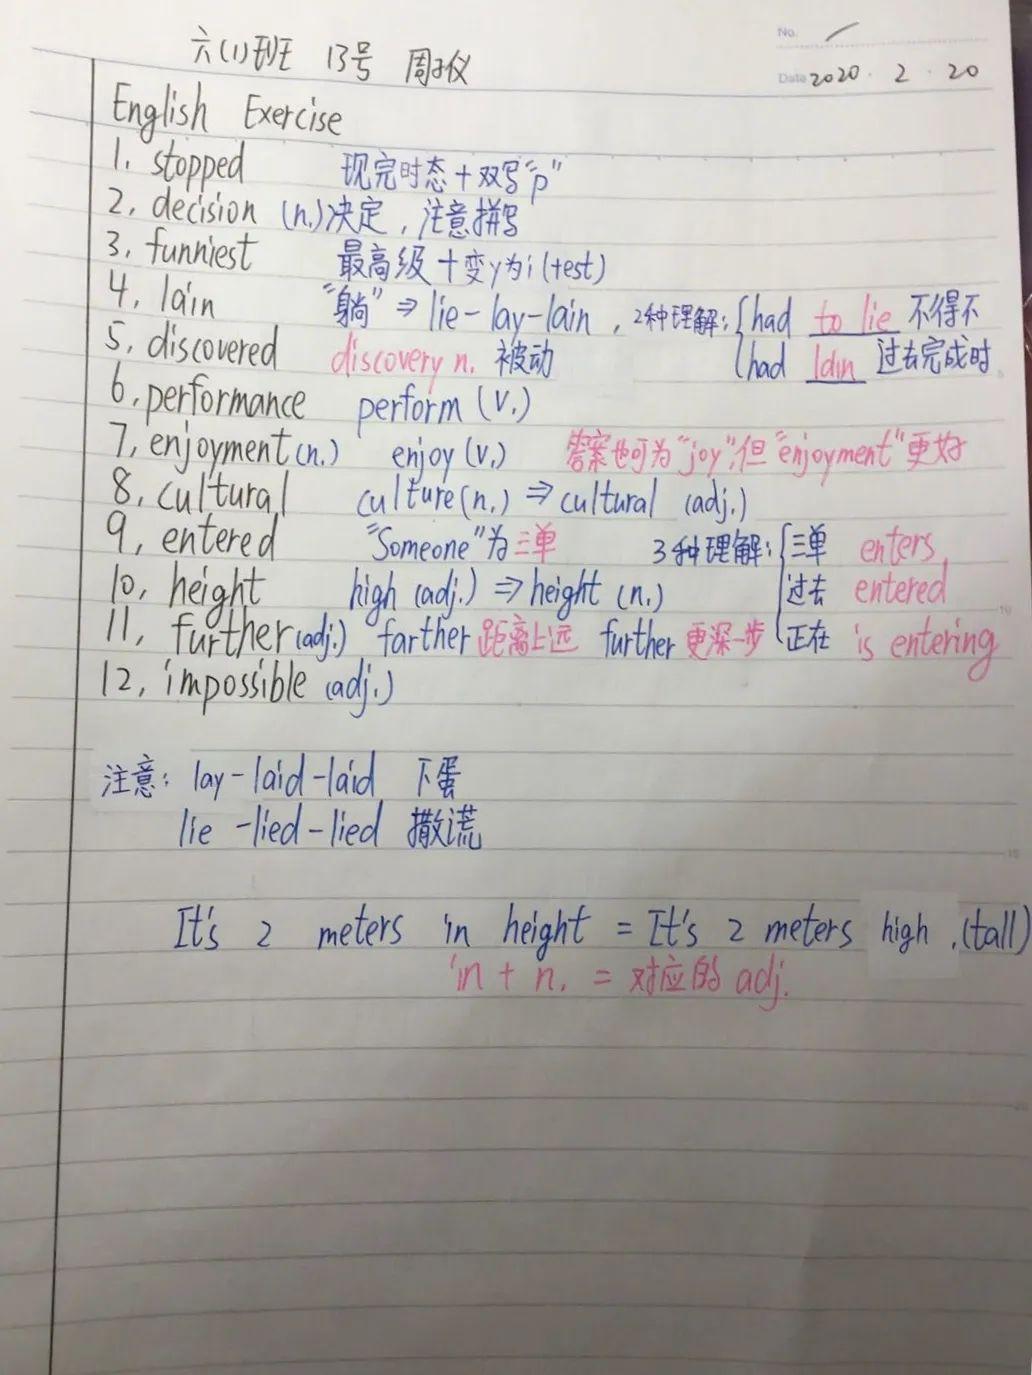 No. 1
六(1)班 13号 周子仪
Date 2020 . 2 . 20
English Exercise
1. stopped 现完时态+双写"p"
2. decision (n.)决定，注意拼写
3. funniest 最高级+变y为i(+est)
4. lain "躺"⇒lie-lay-lain，2种理解:{had to lie 不得不
5. discovered discovery n. 被动 had lain 过去完成时
6. performance perform (v.)
7. enjoyment(n.) enjoy (v.) 答案也可为"joy",但"enjoyment"更好
8. cultural culture(n.)⇒cultural (adj.)
9. entered "Someone"为三单 3种理解:{三单 enters
10. height high (adj.)⇒height (n.) 过去 entered
11. further(adj.) farther 距离上远 further 更深一步 正在 is entering
12. impossible (adj.)
注意: lay-laid-laid 下蛋
lie-lied-lied 撒谎
It's 2 meters in height = It's 2 meters high.(tall)
in + n. = 对应的 adj.